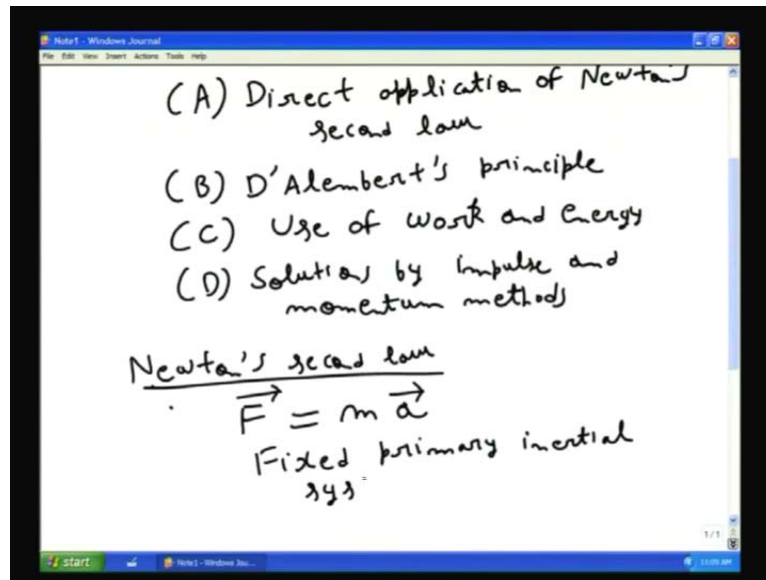 Note1 - Windows Journal
File Edit View Insert Actions Tools Help
(A) Direct application of Newton's
second law
(B) D'Alembert's principle
(C) Use of work and Energy
(D) Solutions by impulse and
momentum methods
Newton's second law
F = m a
Fixed primary inertial
sys
1/1
start
Note1 - Windows Jou...
11:09 AM